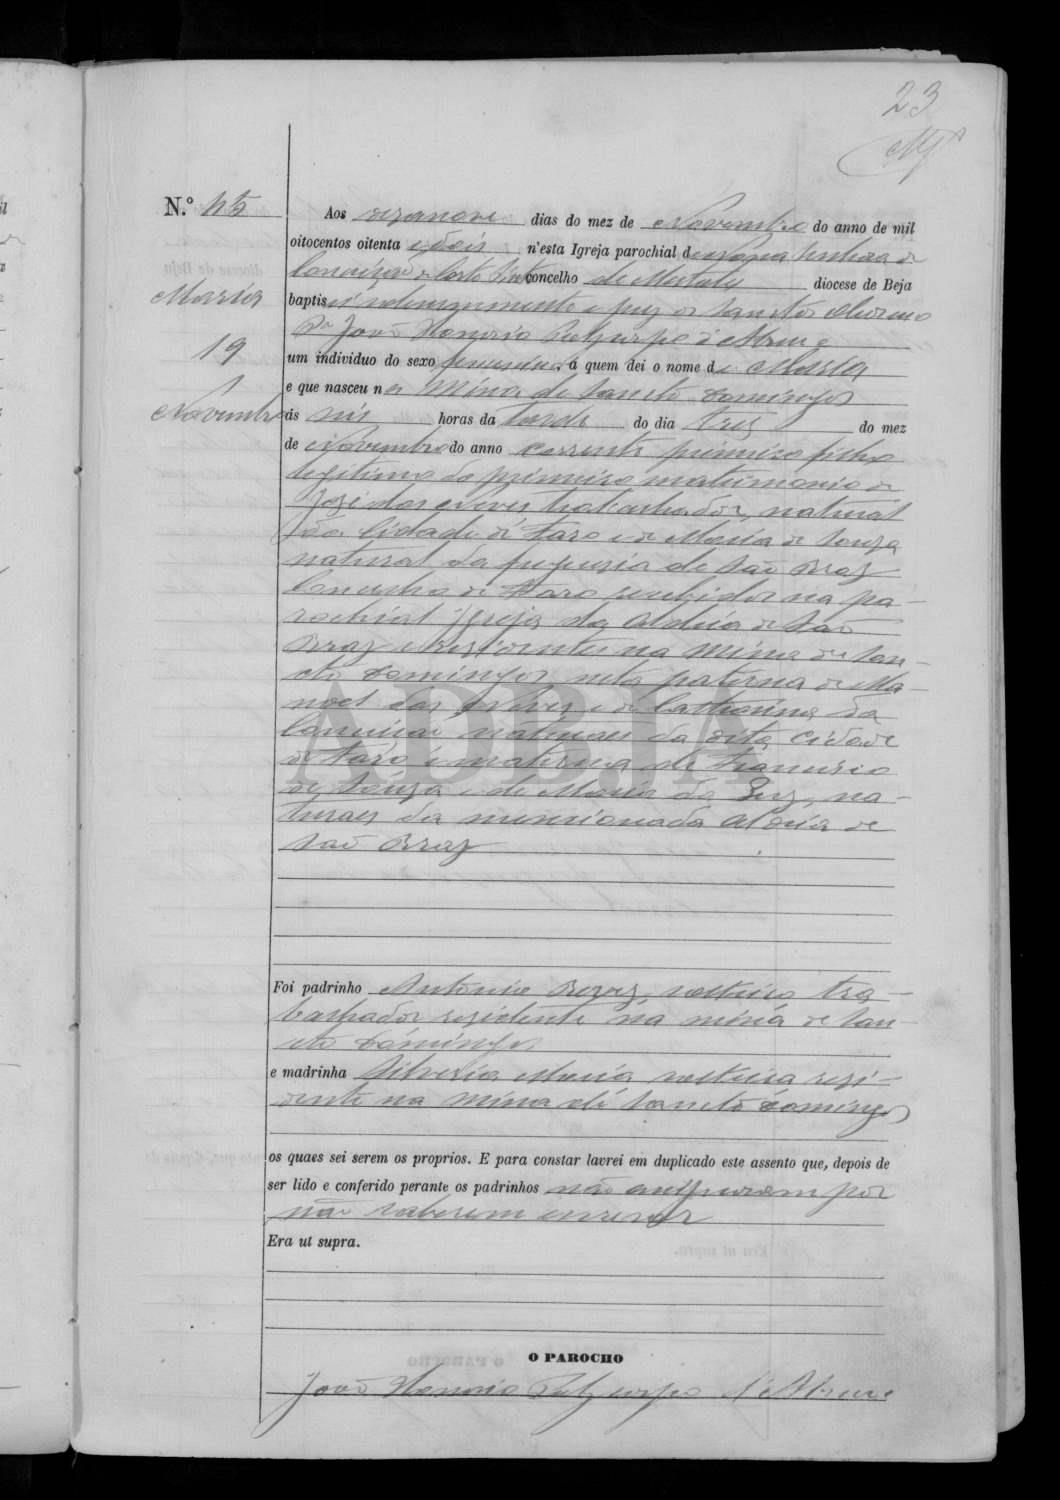 23
N.º 45
Maria
19
Novembro
Aos dezanove dias do mez de Novembro do anno de mil
oitocentos oitenta e dois n'esta Igreja parochial de Nossa Senhora da
Conceição concelho de Mertola diocese de Beja
baptisei solemnemente e puz os Sanctos Oleos
João Honorio d'Abreu
um individuo do sexo femenino, a quem dei o nome de Maria
e que nasceu na Mina de Sancto Domingos
ás seis horas da tarde do dia tres do mez
de Novembro do anno corrente primeiro filho
legitimo do primeiro matrimonio de
José das Neves trabalhador, natural
da Cidade de Faro e de Maria de Souza
natural da freguezia de São Braz
Concelho de Faro recebidos na pa-
rochial Igreja da Aldeia de São
Braz e residentes na Mina de San-
cto Domingos, neta paterna de Ma-
noel das Neves e de Catharina da
Conceição naturaes da dita cidade
de Faro e materna de Francisco
de Souza e de Maria da Luz, na-
turaes da mencionada Aldeia de
São Braz
ADBJA
Foi padrinho Antonio solteiro tra-
balhador residente na mina de San-
cto Domingos
e madrinha Silveria Maria solteira resi-
dente na Mina de Sancto Domingos
os quaes sei serem os proprios. E para constar lavrei em duplicado este assento que, depois de
ser lido e conferido perante os padrinhos não assignaram por
não saberem escrever
Era ut supra.
O PAROCHO
João Honorio d'Abreu